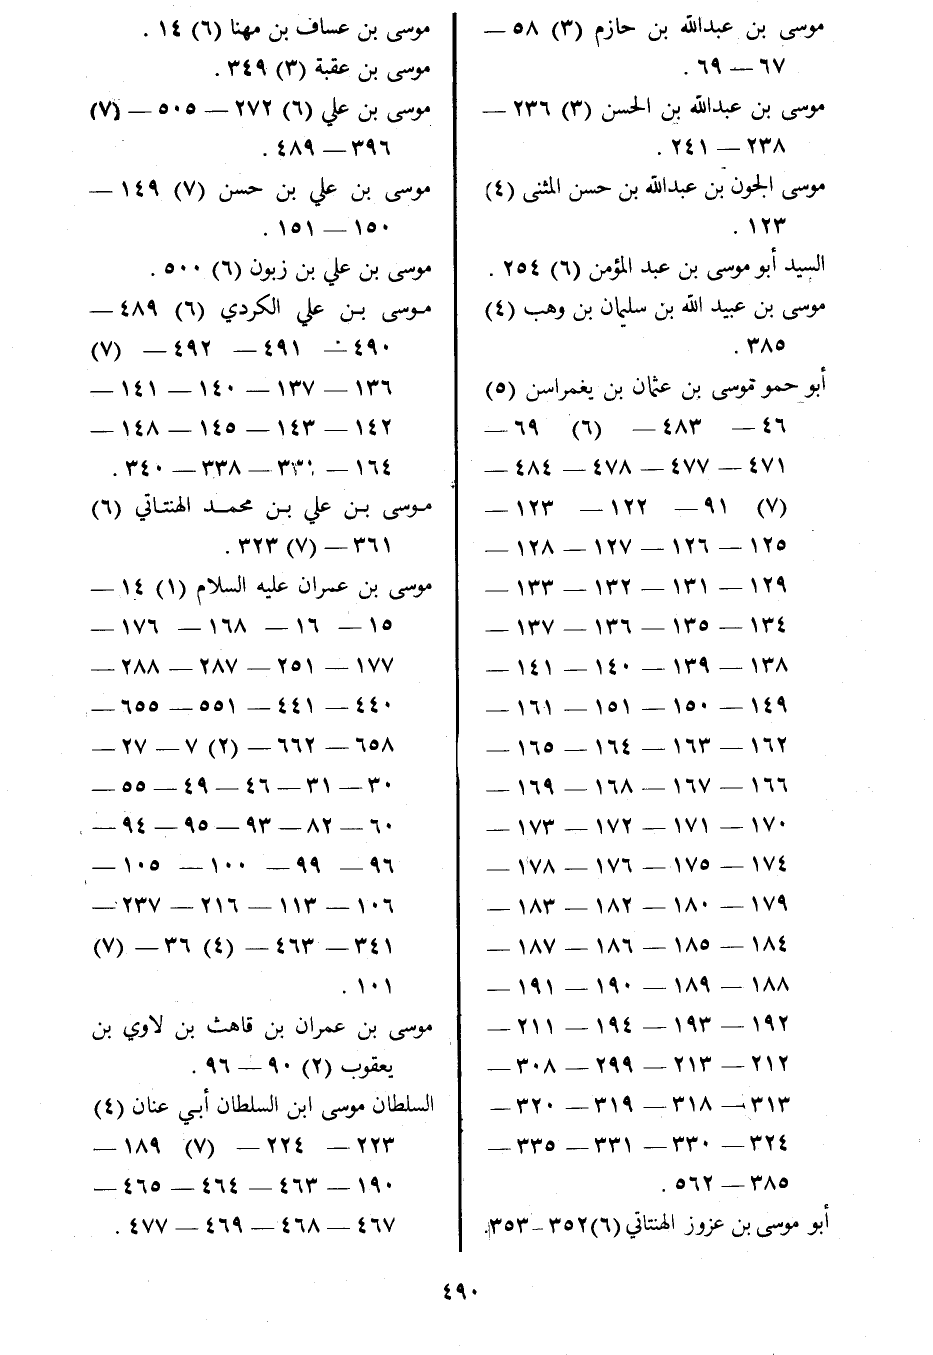 موسى بن عبدالله بن حازم (٣) ٥٨ —
٦٧ — ٦٩ .
موسى بن عبدالله بن الحسن (٣) ٢٣٦ —
٢٣٨ — ٢٤١ .
موسى الجون بن عبدالله بن حسن المثنى (٤)
١٢٣ .
السيد أبو موسى بن عبد المؤمن (٦) ٢٥٤ .
موسى بن عبيد الله بن سليمان بن وهب (٤)
٣٨٥ .
أبو حمو موسى بن عثمان بن يغمراسن (٥)
٤٦ — ٤٨٣ — (٦) ٦٩ —
٤٧١ — ٤٧٧ — ٤٧٨ — ٤٨٤ —
(٧) ٩١ — ١٢٢ — ١٢٣ —
١٢٥ — ١٢٦ — ١٢٧ — ١٢٨ —
١٢٩ — ١٣١ — ١٣٢ — ١٣٣ —
١٣٤ — ١٣٥ — ١٣٦ — ١٣٧ —
١٣٨ — ١٣٩ — ١٤٠ — ١٤١ —
١٤٩ — ١٥٠ — ١٥١ — ١٦١ —
١٦٢ — ١٦٣ — ١٦٤ — ١٦٥ —
١٦٦ — ١٦٧ — ١٦٨ — ١٦٩ —
١٧٠ — ١٧١ — ١٧٢ — ١٧٣ —
١٧٤ — ١٧٥ — ١٧٦ — ١٧٨ —
١٧٩ — ١٨٠ — ١٨٢ — ١٨٣ —
١٨٤ — ١٨٥ — ١٨٦ — ١٨٧ —
١٨٨ — ١٨٩ — ١٩٠ — ١٩١ —
١٩٢ — ١٩٣ — ١٩٤ — ٢١١ —
٢١٢ — ٢١٣ — ٢٩٩ — ٣٠٨ —
٣١٣ — ٣١٨ — ٣١٩ — ٣٢٠ —
٣٢٤ — ٣٣٠ — ٣٣١ — ٣٣٥ —
٣٨٥ — ٥٦٢ .
أبو موسى بن عزوز الهنتاتي (٦) ٣٥٢ — ٣٥٣.
موسى بن عساف بن مهنا (٦) ١٤ .
موسى بن عقبة (٣) ٣٤٩ .
موسى بن علي (٦) ٢٧٢ — ٥٠٥ — (٧)
٣٩٦ — ٤٨٩ .
موسى بن علي بن حسن (٧) ١٤٩ —
١٥٠ — ١٥١ .
موسى بن علي بن زبون (٦) ٥٠٠ .
موسى بن علي الكردي (٦) ٤٨٩ —
٤٩٠ — ٤٩١ — ٤٩٢ — (٧)
١٣٦ — ١٣٧ — ١٤٠ — ١٤١ —
١٤٢ — ١٤٣ — ١٤٥ — ١٤٨ —
١٦٤ — — ٣٣٨ — ٣٤٠ .
موسى بن علي بن محمد الهنتاتي (٦)
٣٦١ — (٧) ٣٢٣ .
موسى بن عمران عليه السلام (١) ١٤ —
١٥ — ١٦ — ١٦٨ — ١٧٦ —
١٧٧ — ٢٥١ — ٢٨٧ — ٢٨٨ —
٤٤٠ — ٤٤١ — ٥٥١ — ٦٥٥ —
٦٥٨ — ٦٦٢ — (٢) ٧ — ٢٧ —
٣٠ — ٣١ — ٤٦ — ٤٩ — ٥٥ —
٦٠ — ٨٢ — ٩٣ — ٩٥ — ٩٤ —
٩٦ — ٩٩ — ١٠٠ — ١٠٥ —
١٠٦ — ١١٣ — ٢١٦ — ٢٣٧ —
٣٤١ — ٤٦٣ — (٤) ٣٦ — (٧)
١٠١ .
موسى بن عمران بن قاهث بن لاوي بن
يعقوب (٢) ٩٠ — ٩٦ .
السلطان موسى ابن السلطان أبي عنان (٤)
٢٢٣ — ٢٢٤ — (٧) ١٨٩ —
١٩٠ — ٤٦٣ — ٤٦٤ — ٤٦٥ —
٤٦٧ — ٤٦٨ — ٤٦٩ — ٤٧٧ .
٤٩٠